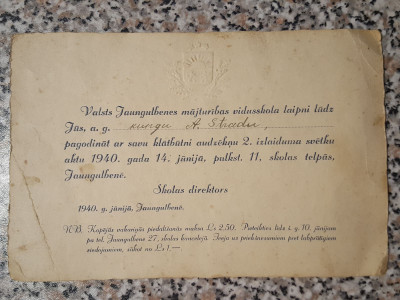 Valsts Jaungulbenes mājturības vidusskola laipni lūdz
Jūs, a. g. kungu A. Stradu,
pagodināt ar savu klātbūtni audzēkņu 2. izlaiduma svētku
aktu 1940. gada 14. jūnijā, pulkst. 11, skolas telpās,
Jaungulbenē.
Skolas direktors
1940. g. jūnijā, Jaungulbenē.
NB. Kopējās vakariņās piedalīšanās maksa Ls 2,50. Pieteikties līdz š. g. 10. jūnijam
pa tel. Jaungulbenē 27, skolas kancelejā. Ieeja uz priekšnesumiem pret labprātīgiem
ziedojumiem, sākot no Ls 1.—